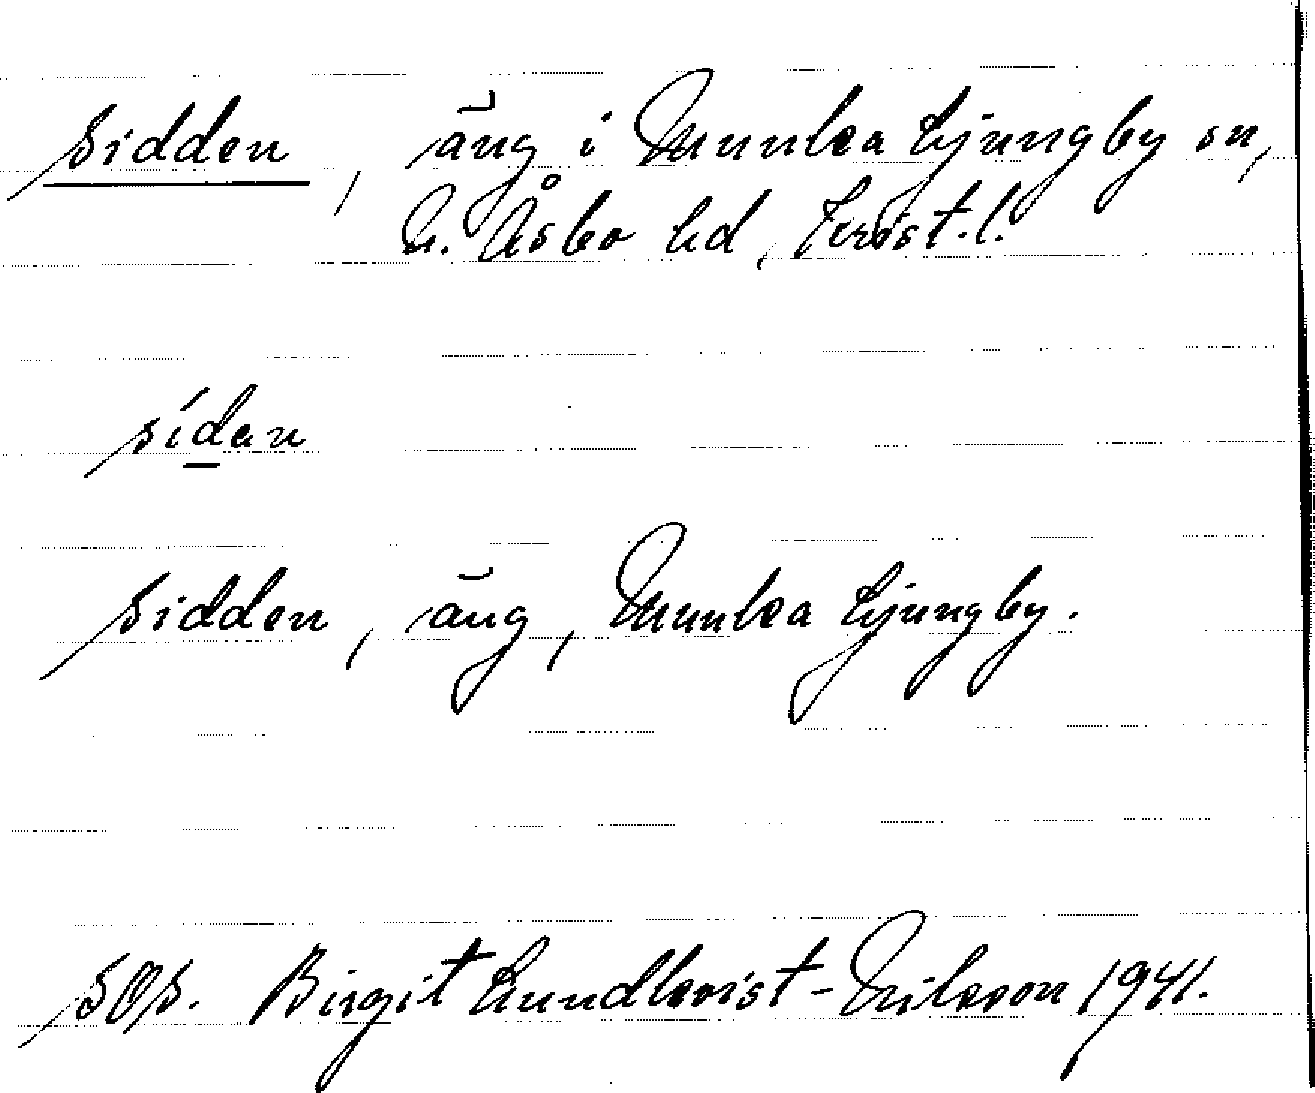 Sidden, äng i Munka Ljungby sn,
N. Åsbo hd, Krist.l.
sídan
Sidden, äng, Munka Ljungby.
SOS. Birgit Lundkvist-Nilsson 1941.